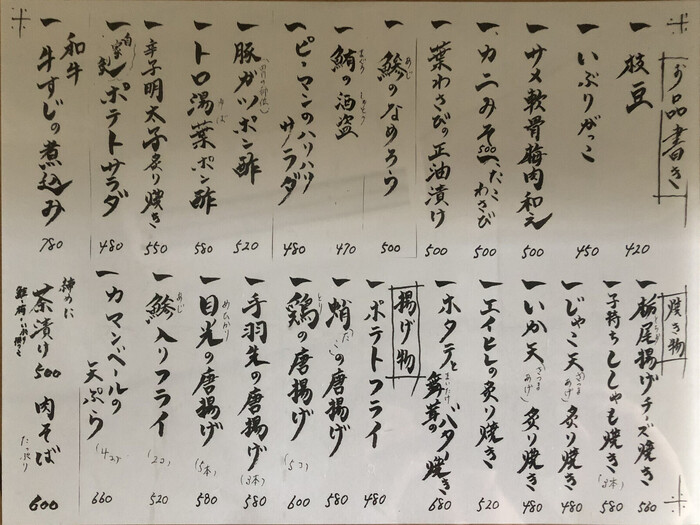 お品書き
一 枝豆 420
一 いぶりがっこ 450
一 サメ軟骨梅肉和え 500
一 カニみそ 500 、たこわさび 500
一 葉わさびの正油漬け 500
一 鯵のなめろう 500
あじ
一 鮪の酒盗 470
まぐろ しゅとう
一 ピーマンのハリハリサラダ 480
一 豚ガツポン酢 520
一 トロ湯葉ポン酢 580
ゆば
一 辛子明太子炙り焼き 550
一 ポテトサラダ 480
一 和牛 牛すじの煮込み 780
焼き物
一 栃尾揚げチーズ焼き 560
一 子持ちししゃも焼き (3本) 580
一 じゃこ天 (さつまあげ) 炙り焼き 480
一 いか天 (さつまあげ) 炙り焼き 480
一 エイヒレの炙り焼き 520
一 ホタテと舞茸のバター焼き 680
まいたけ
揚げ物
一 ポテトフライ 480
一 蛸の唐揚げ 580
たこ
一 鶏の唐揚げ (5コ) 600
とり
一 手羽先の唐揚げ (3本) 580
一 目光の唐揚げ (5本) 580
めひかり
一 鯵入りフライ (2コ) 520
あじ
一 カマンベールの天ぷら (4コ) 660
締めに
茶漬け 500
肉そば 600